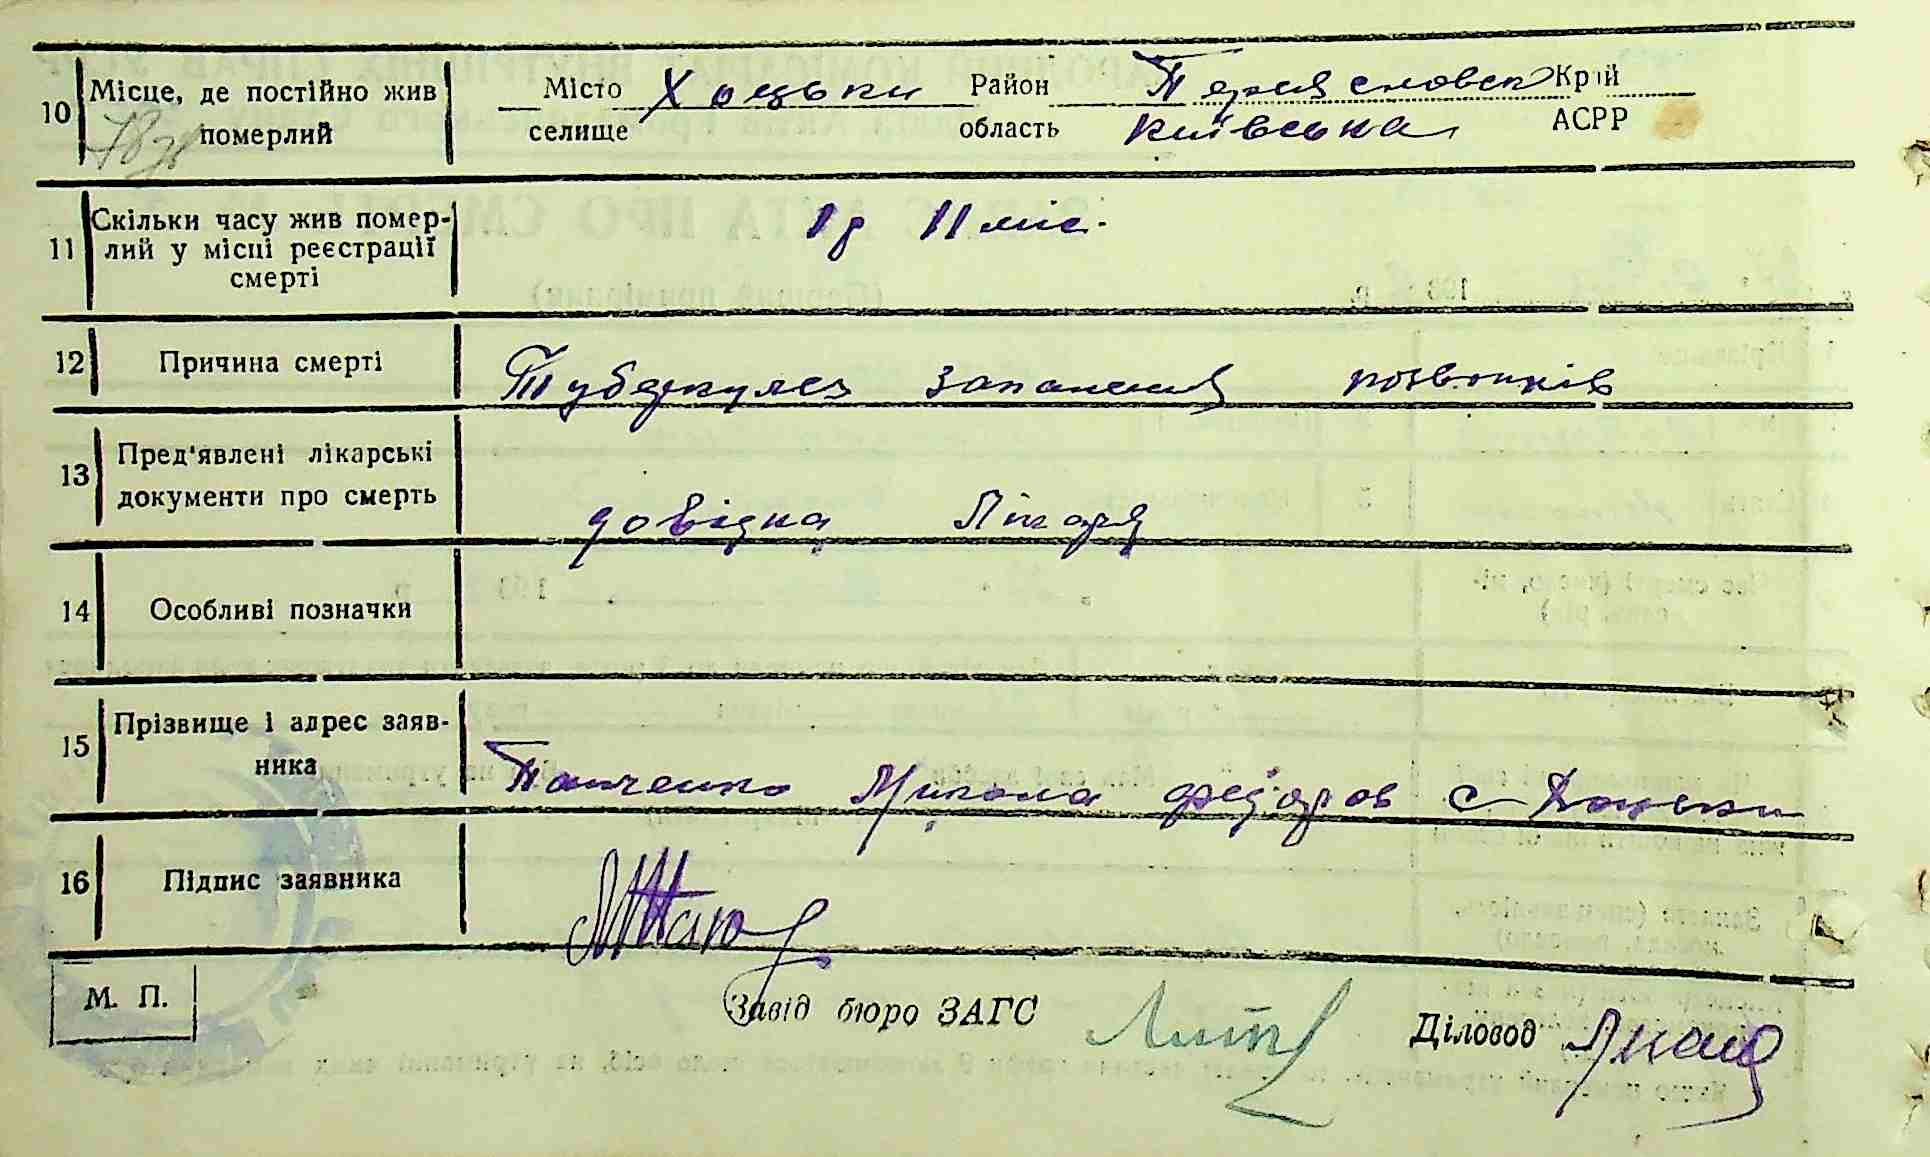 10 Місце, де постійно жив померлий
Місто Хоцьки Район Переясловськ Крій
селище область Київська АСРР
11 Скільки часу жив помер-
лий у місці реєстрації
смерті
1 р 11 міс.
12 Причина смерті
Туберкулез запалення позвонків
13 Пред'явлені лікарські
документи про смерть
довідка Лікаря
14 Особливі позначки
15 Прізвище і адрес заяв-
ника
Панченко Микола Федоров с Хоцьки
16 Підпис заявника
М. П.
Завід бюро ЗАГС
Діловод